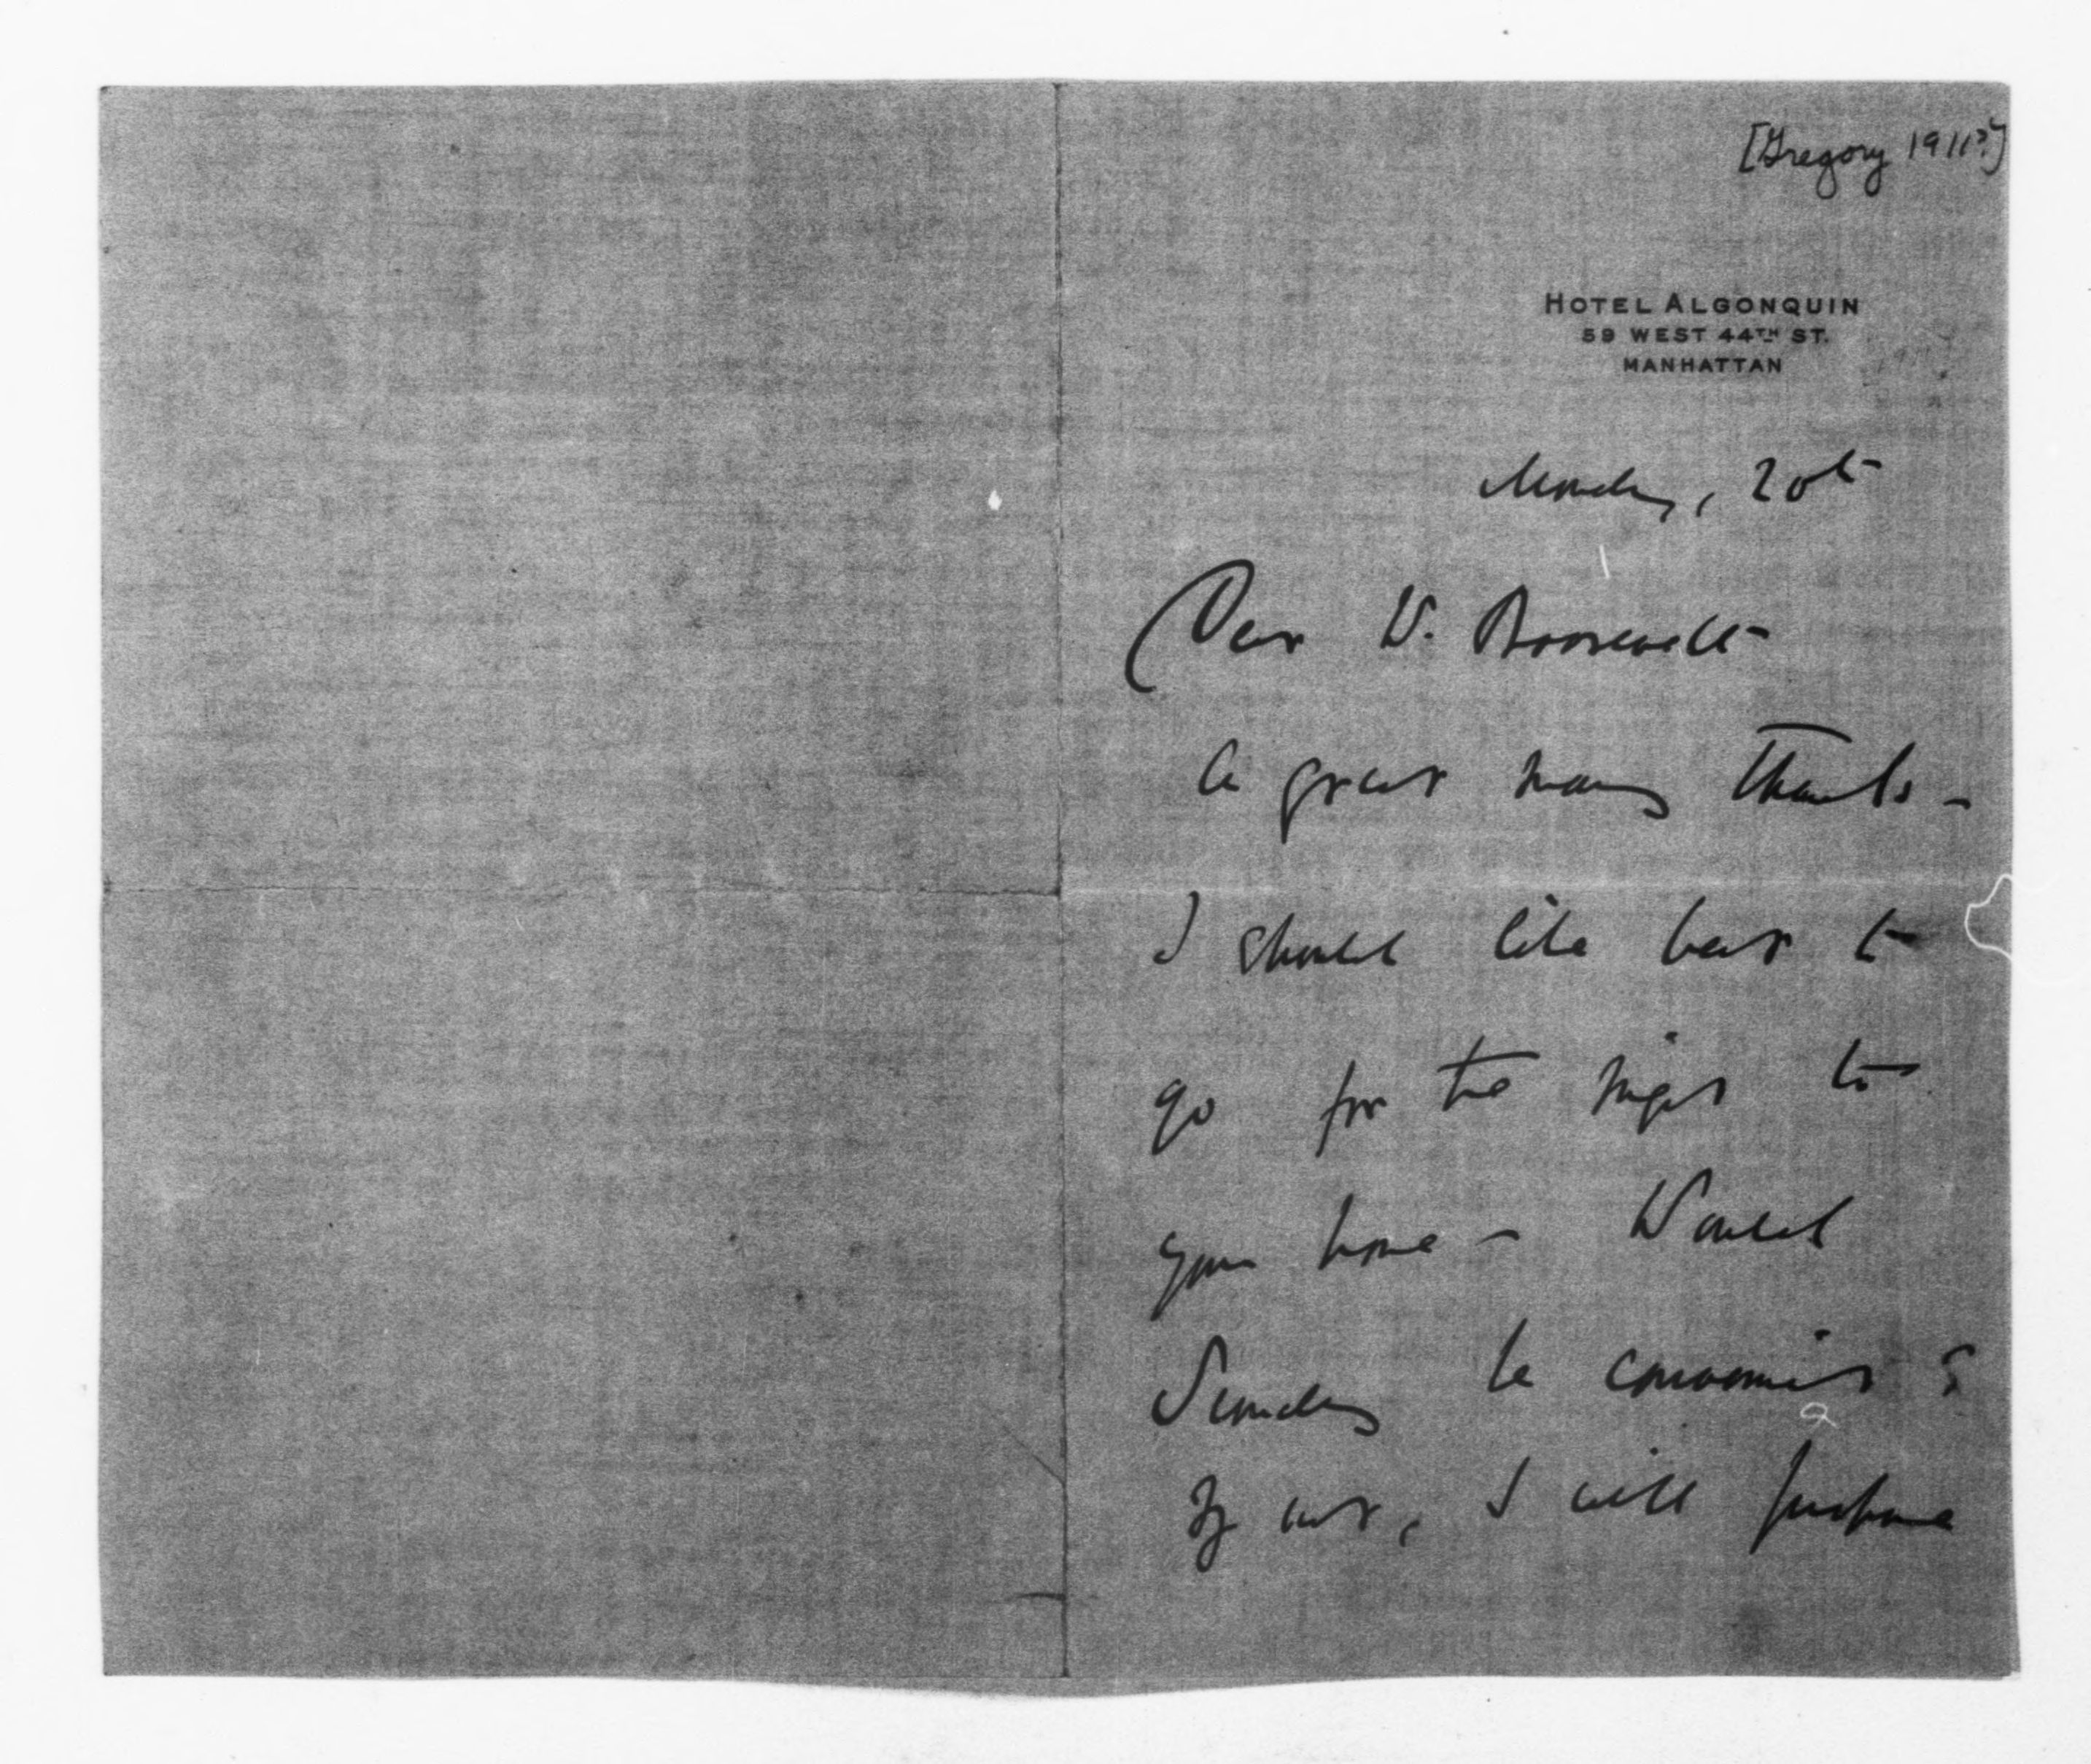 [Gregory 1911?]
HOTEL ALGONQUIN
59 WEST 44TH ST.
MANHATTAN
Monday, 20th
Dear Mr. Roosevelt
A great many thanks -
I should like best to
go for the night to
your home - Would
Sunday be convenient?
If not, I will purpose